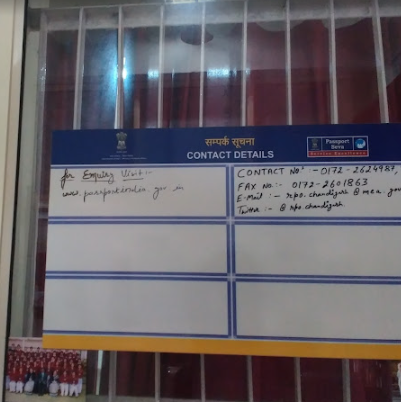 सम्पर्क सूचना
CONTACT DETAILS
Passport
Seva
Service Excellence
for Enquiry Visit:-
www.passportindia.gov.in
CONTACT NO :- 0172-2624987,
FAX No.:- 0172-2601863
E-Mail :- rpo.chandigarh @ mea.gov
Twitter :- @ rpo.chandigarh.